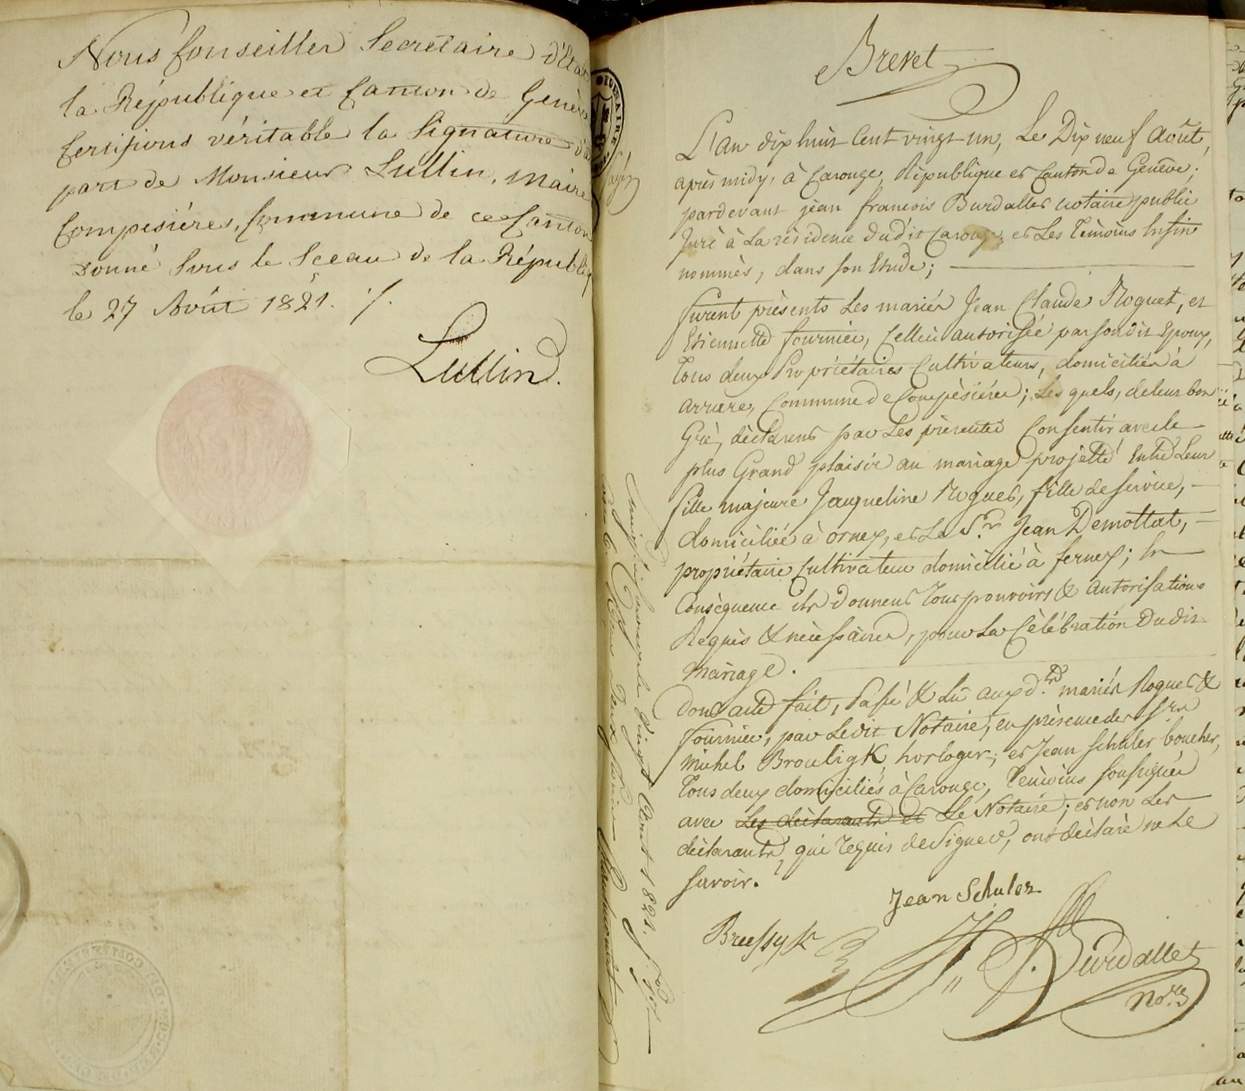 Nous Conseiller Secrétaire d'Etat
la République et Canton de Genève
Certifions véritable la Signature
part de Monsieur Lullin, Maire
Compesiéres, Commune de ce Canton
Donné sous le Sceau de la Républiq
le 27 Août 1821. /.
Lullin.
Brevet
L'an dix huit Cent vingt un, Le Dix neuf Août,
après midy, à Carouge, République et Canton de Genève;
pardevant jean francois Burdallet notaire public
Juré à La résidence dudit Carouge, et Les Témoins Enfin
nommés, dans son Etude;
Furent présents Les mariés Jean Claude Roguet, et
Etiennette fournier, Celleci autorisée par sondit Epoux,
Tous deux Propriétaires Cultivateurs, domiciliés à
arrare, Commune de Compésières; Lesquels, de leur bon
Gré, déclarent par Les présentes Consentir avec le
plus Grand plaisir au mariage projetté Entre Leur
fille majeure Jaqueline Roguet, fille de service,
domiciliée à ornex, et Le Sr. Jean Demottat,
propriétaire Cultivateur domicilié à fernex; En
Conséquence ils donnent Tous pouvoirs & autorisations
Requis & nécessaires, pour La Célébration dudit
mariage.
Dont acte fait, Passé & Lu auxd.ts mariés Roguet &
Fournier, par Ledit Notaire, en présence des Srs
Michel Brouligk horloger; et Jean Schuler boucher,
Tous deux domiciliés à Carouge, Témoins soussignés
avec Les déclarants et Le Notaire; et non Les
déclarants, qui Requis de Signer, ont déclaré ne Le
savoir.
Jean Schuler
Bressyk
J. F. Burdallet
No.re